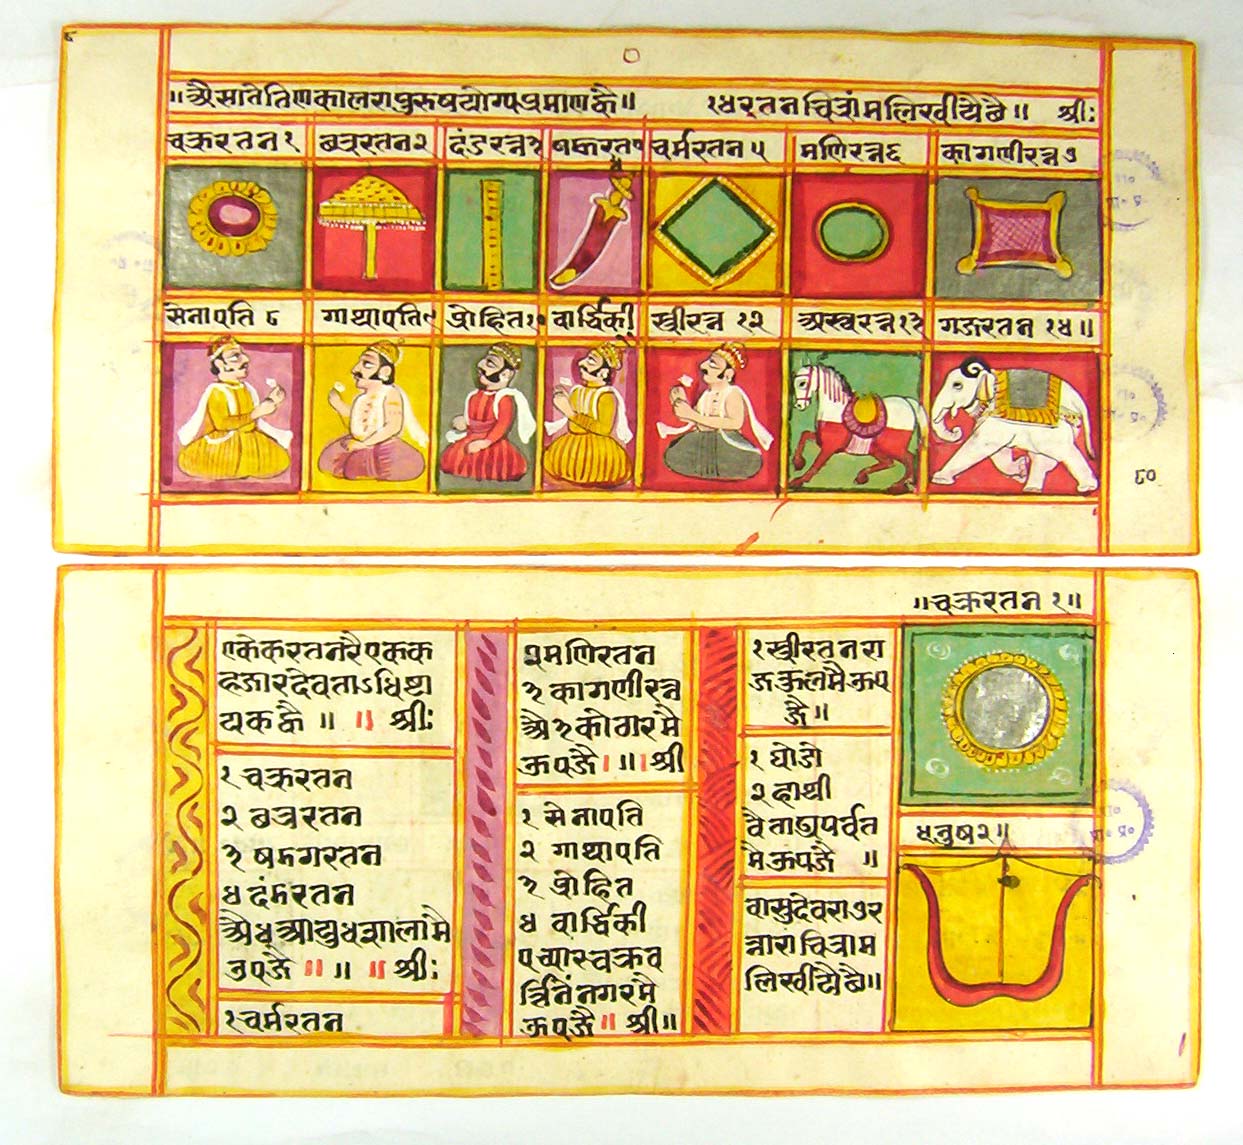 ॥ऐसातेतिणकालरापुरुषयोग्यप्रमाणकै॥ १४रतनचित्रांमलिखीयैबै॥ श्रीः
चक्ररतन१ बत्ररतन२ दंडरत्न३ चर्मरतन५ मणिरत्न६ कागणीरत्न७
सेनापति ८ गाथापति९ प्रोहित१० वार्द्धिकी स्त्रीरत्न १२ अस्वरत्न१३ गजरतन १४॥
८०
॥चक्ररतन १॥
एकेकरतनरैएकक
हजारदेवताऽधिष्टा
यककै ॥ ॥ श्रीः
१ चक्ररतन
२ बत्ररतन
३ षमगरतन
४ दंमरतन
ऐ४आयुधशालामै
उपजै ॥ ॥ ॥ श्रीः
१चर्मरतन
२मणिरतन
३कागणीरत्न
ऐ३कोठारमै
ऊपजै ॥ श्री
१ सेनापति
२ गाथापति
३ प्रोहित
४ वार्द्धिकी
एच्यारचक्रव
र्त्तिनेनगरमै
ऊपजै॥ श्री॥
१स्त्रीरतनरा
जकुलमैऊप
जै॥
१ घोडो
२ हाथी
वैताढ्यपर्वत
मैऊपजै ॥
वासुदेवरा७र
त्नारांचित्राम
लिखीयैबै॥
धनुष२॥